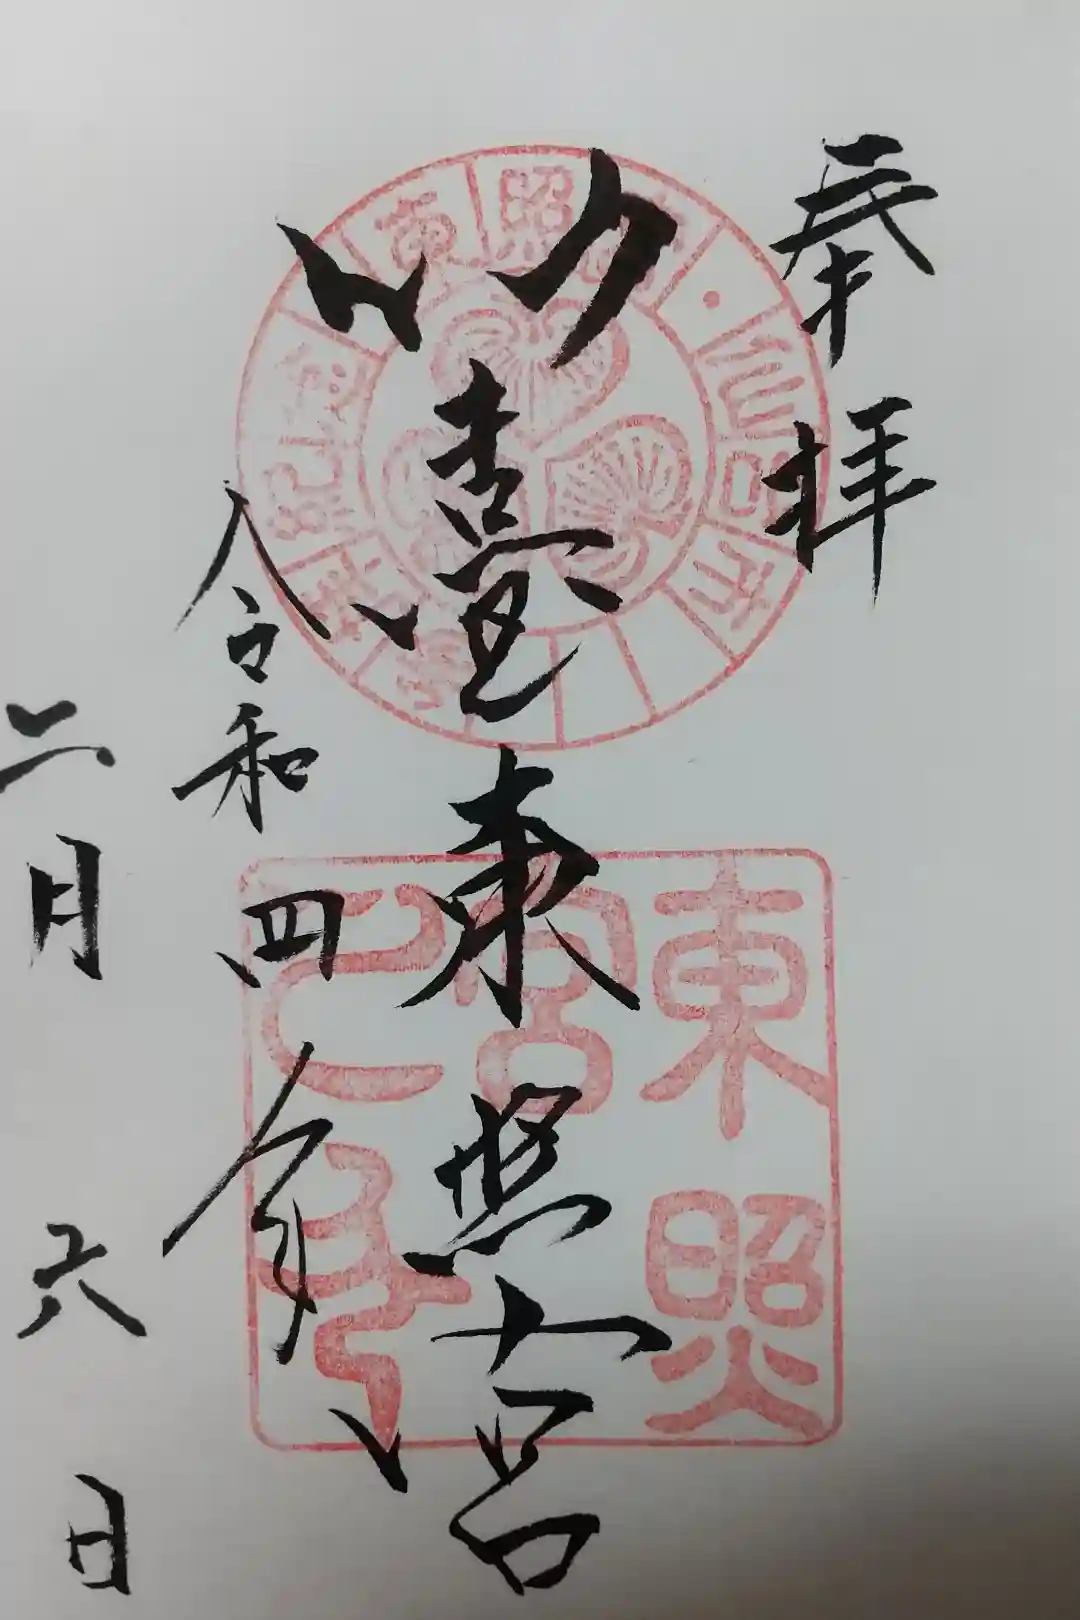 奉拝
仙臺東照宮
令和四年
二月六日
東照宮